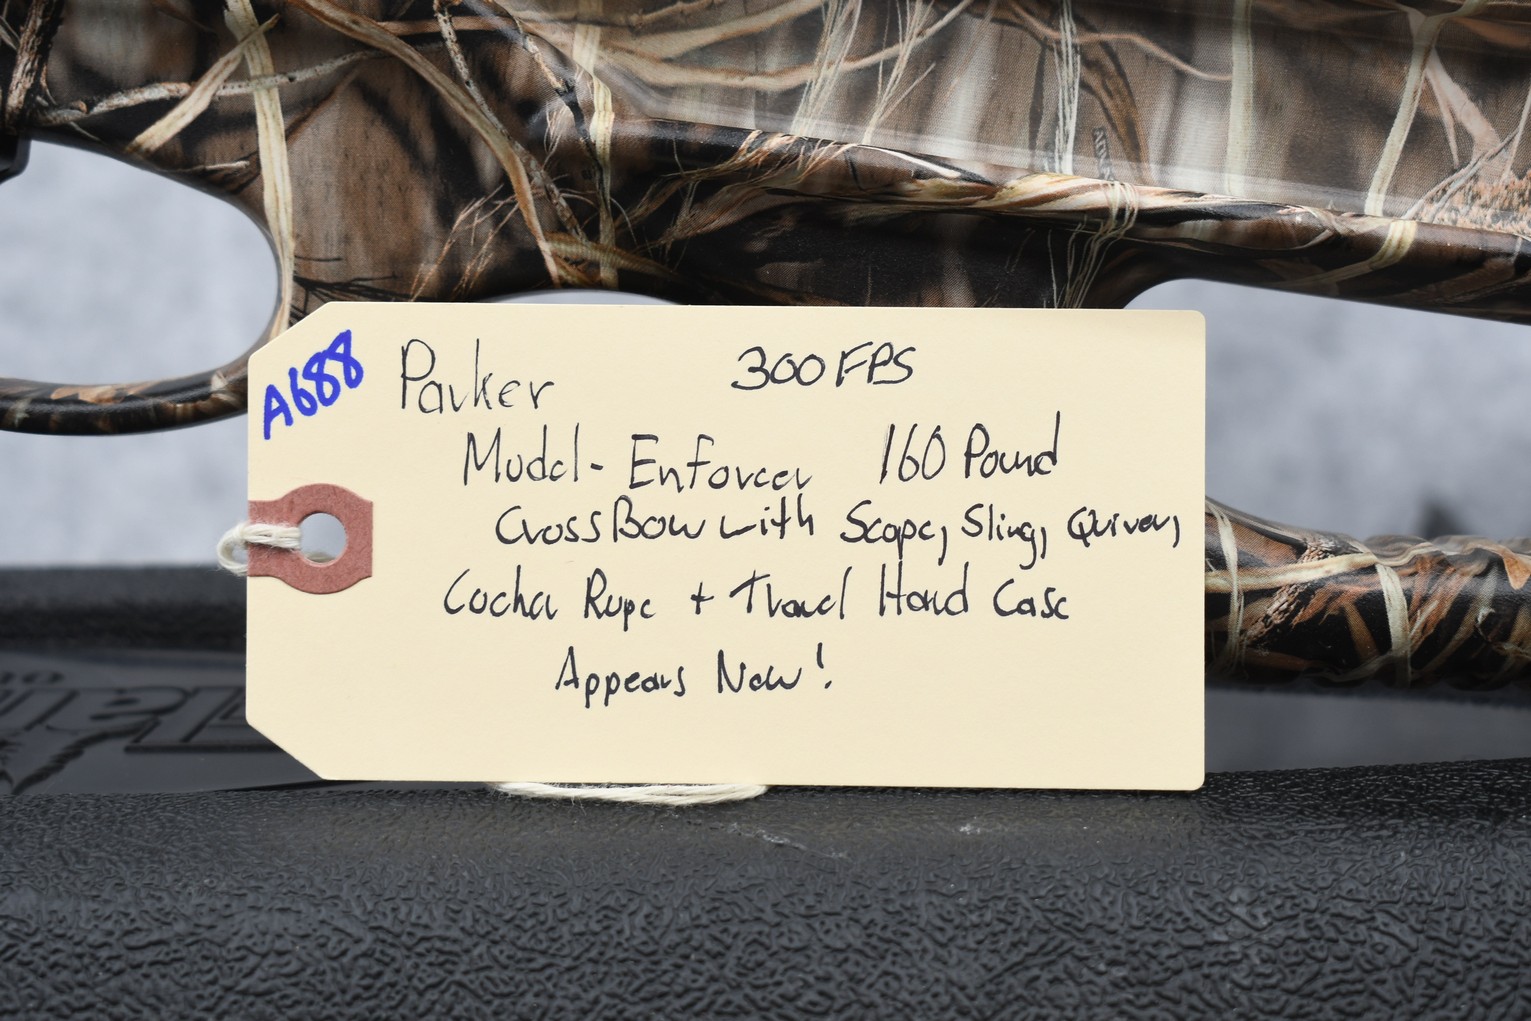 A688
Parker 300 FPS
Model - Enforcer 160 Pound
CrossBow with Scope, Sling, Quiver,
Cocker Rope + Travel Hard Case
Appears New!